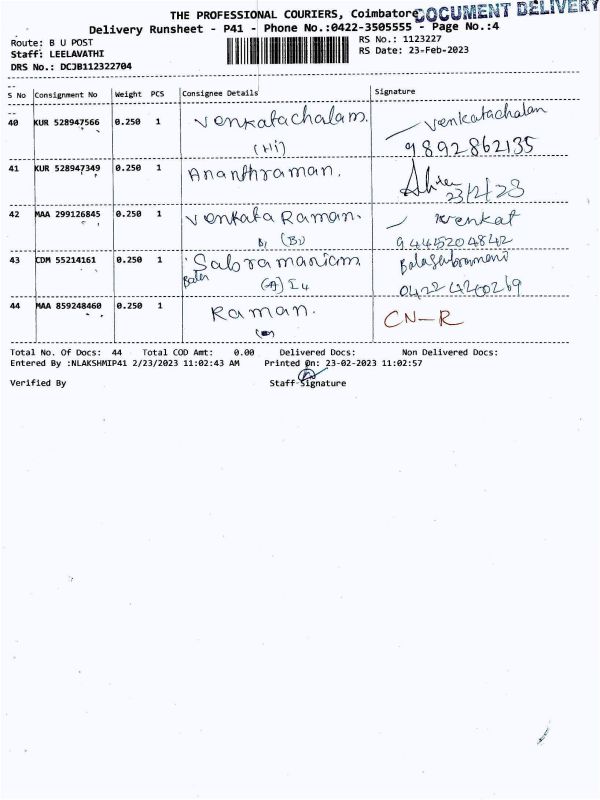 THE PROFESSIONAL COURIERS, Coimbatore
DOCUMENT DELIVERY
Delivery Runsheet - P41 - Phone No.:0422-3505555 - Page No.:4
Route: B U POST
RS No.: 1123227
Staff: LEELAVATHI
RS Date: 23-Feb-2023
DRS No.: DCJB112322704
S No Consignment No Weight PCS Consignee Details Signature
40 KUR 528947566 0.250 1 Venkatachalam. Venkatachalan
(Hi) 9892862135
41 KUR 528947349 0.250 1 Ananthraman.
23/2/23
42 MAA 299126845 0.250 1 Venkata Raman. Venkat
(B1) 9445204842
43 CDM 55214161 0.250 1 Sabramaniam Balasubramani
Bala (A) I4 0422 4200269
44 MAA 859248460 0.250 1 Raman. CN-R
Total No. Of Docs: 44 Total COD Amt: 0.00 Delivered Docs: Non Delivered Docs:
Entered By :NLAKSHMIP41 2/23/2023 11:02:43 AM Printed On: 23-02-2023 11:02:57
Verified By Staff Signature